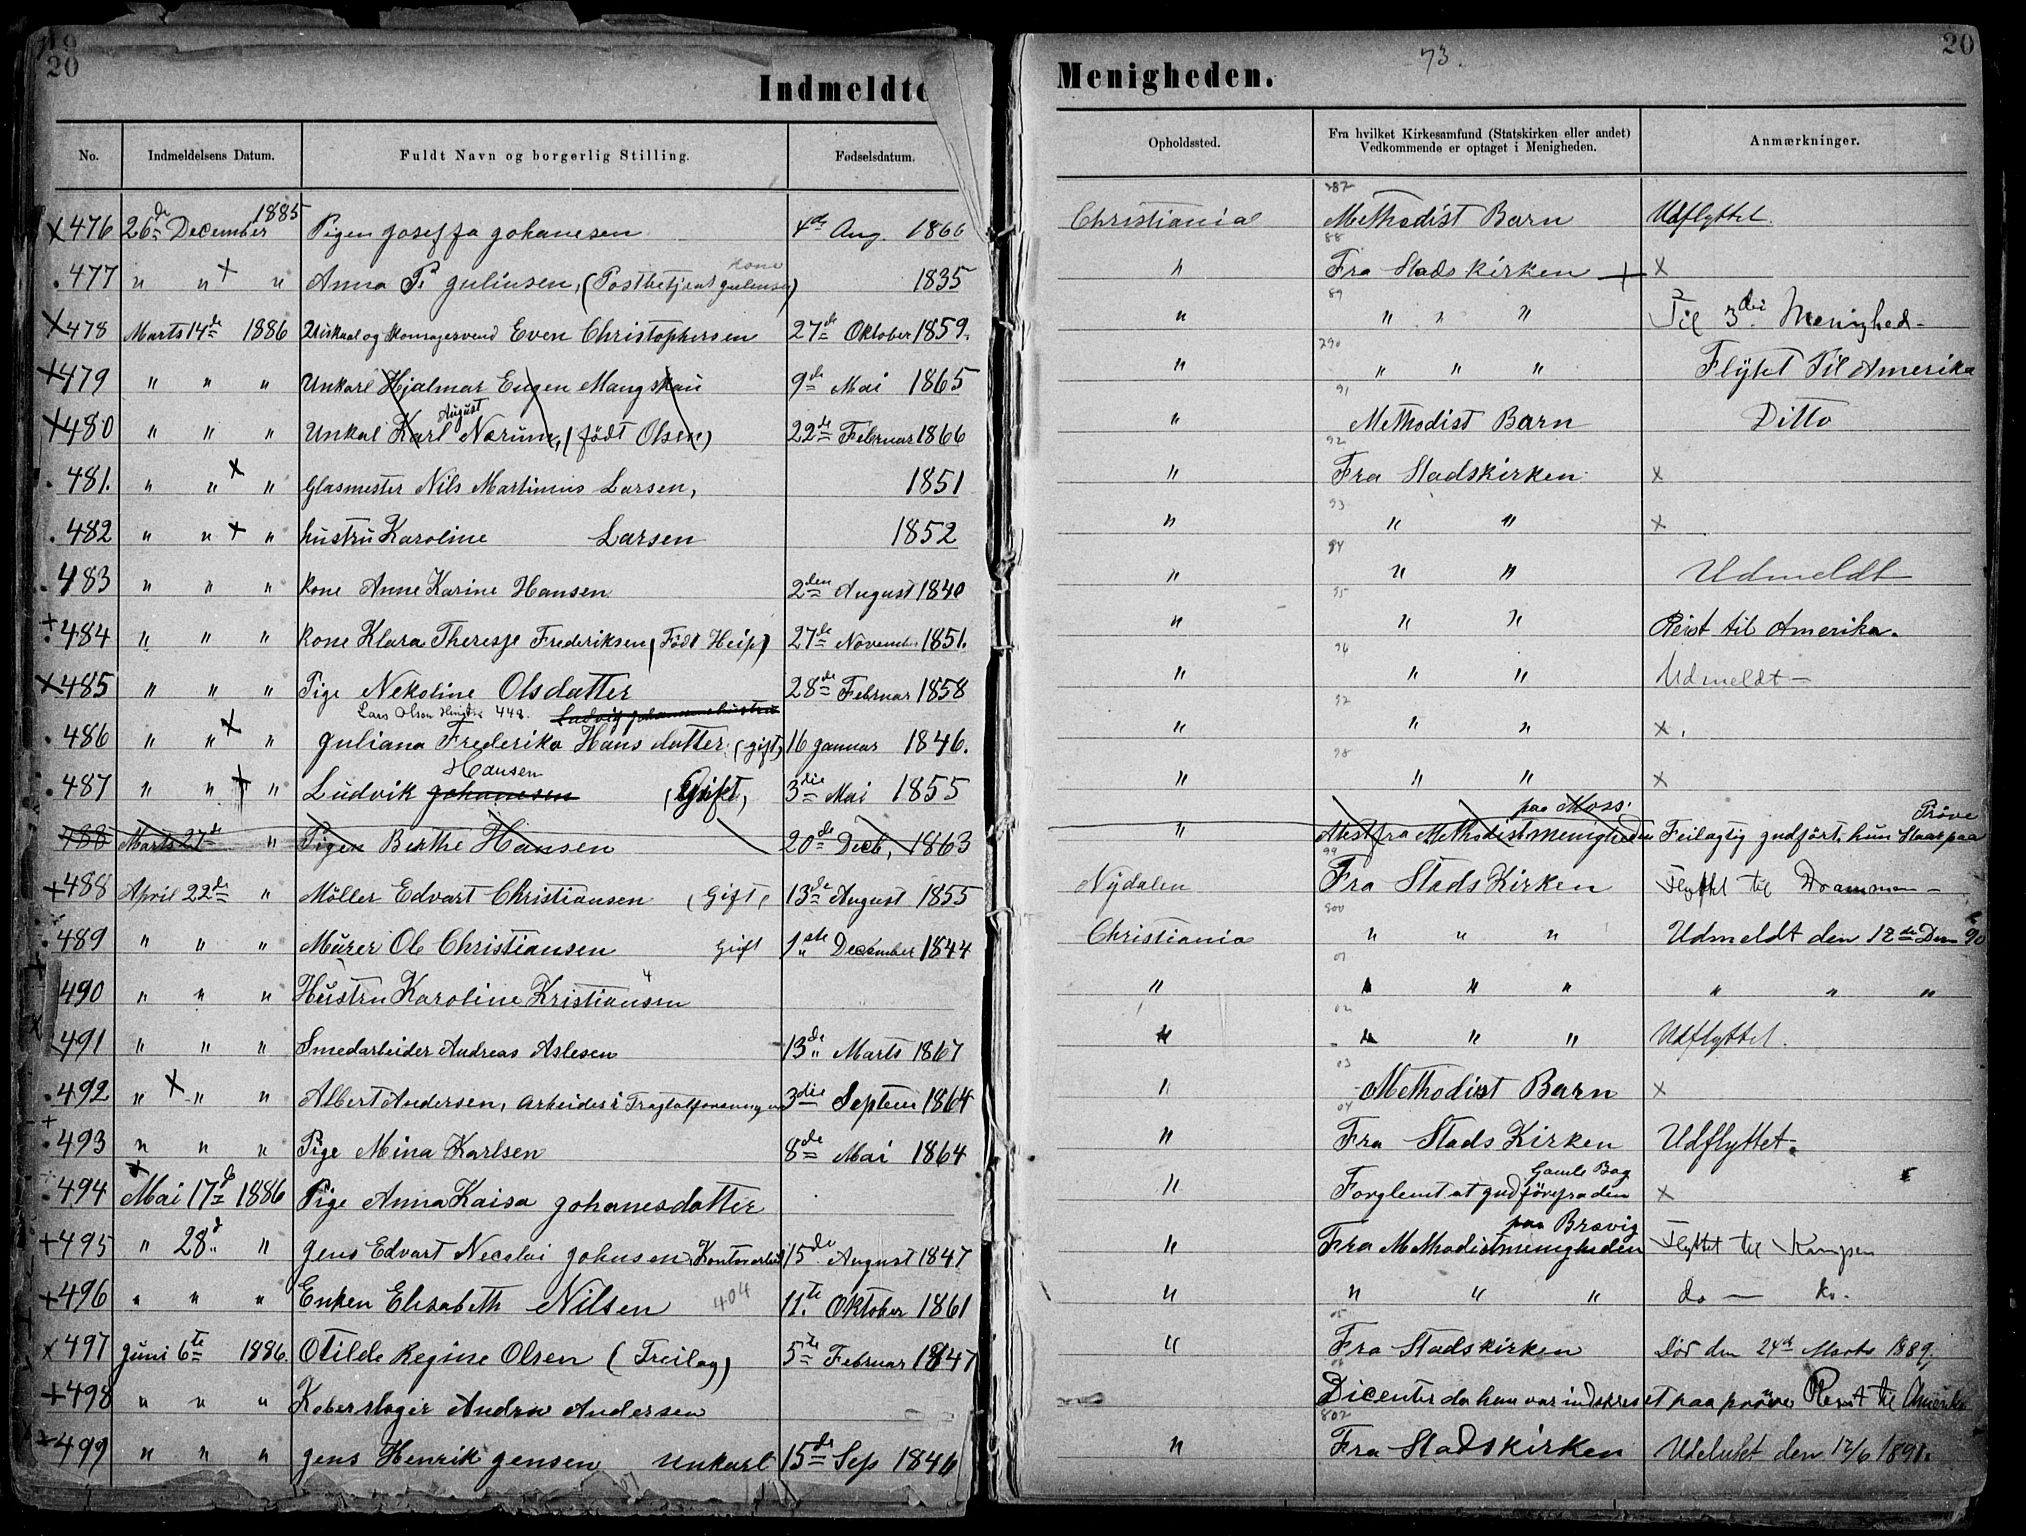 19
20
20
73.
Indmeldte
Menigheden.
No. Indmeldelsens Datum. Fuldt Navn og borgerlig Stilling. Fødselsdatum. Opholdssted. Fra hvilket Kirkesamfund (Statskirken eller andet) Vedkommende er optaget i Menigheden. Anmærkninger.
x 476 26de December 1885 Pigen Joseffa Johanesen 4de Aug. 1866 Christiania 287 Methodist Barn Udflyttet.
. 477 " " x " Anna P. Julinsen, (Postbetjent Julinsen kone) 1835 " 88 Fra Stads kirken + x
x 478 Marts 14de 1886 Even Christophersen 27de Oktober 1859. " 89 " " " Til 3die Menighed -
x 479 " " " Unkarl Hjalmar Eugen Mangskau 9de Mai 1865 " 290 " " " Flytet Til Amerika
x 480 " " " Unkal Karl August Norum, (födt Olsen) 22de Februar 1866 " 91 Methodist Barn Ditto
. 481. " " x " Glasmester Nils Martinius Larsen, 1851 " 92 Fra Stadskirken x
. 482 " " x " hustru Karoline Larsen 1852 " 93 " " x
. 483 " " " kone Anne Karine Hansen 2den August 1840 " 94 " " Udmeldt
+ 484 " " " kone Klara Theresje Frederiksen (Födt Heip) 27de Novemb. 1851. " 95 " " Reist til Amerika.
x 485 " " " Pige Nekoline Olsdatter 28de Februar 1858 " 96 " " Udmeldt -
Lars Olsen 448. Ludvig Johansens hustru
. 486 " " x " Juliana Frederika Hansdatter (gift) 16 Januar 1846. " " " x.
. 487 " " x " Ludvik Johanesen Hansen (Gift, 3die Mai 1855 " 98 " " x
488 Marts 27de " Pigen Berthe Hansen 20de Decb, 1863 " Atest fra Methodistmenigheden paa Moss. Feilagtig indfört, hun Staar paa Pröve
+ 488 April 22de " Möller Edvart Christiansen (Gift, 13de August 1855 Nydalen 99 Fra Stads Kirken Flyttet til Drammen -
. 489 " " " Murer Ole Christiansen Gift 1ste December 1844 Christiania 300 " " " Udmeldt den 12de Dem 90
+ 490 " " " Hustru Karoline Kristiansen " 01 " " " " " "
x 491 " " " Smedarbeider Andreas Aslesen 13de Marts 1867 " 02 " " " Udflyttet.
. 492 " x " " Albert Andersen, Arbeider i 3die Septem 1864 " 03 Methodist Barn x
+ 493 " " " Pige Mina Karlsen 8de Mai 1864 " 04 Fra Stads Kirken Udflyttet.
. 494 x Mai 17de 1886 Pige Anna Kaisa Johanesdatter " Forglemt at indföre fra den Gamle Bog x
+ 495 " 28d " Jens Edvart Necolai Johnsen, 15de August 1847 " Fra Methodistmenigheden paa Brevig Flyttet til Kampen
+ 496 " " " Enken Elisabeth Nilsen 404 11te Oktober 1861 " " " " do - do.
x 497 Juni 6te 1886 Otilde Regine Olsen (Freilag) 5te Februar 1847 " 05 Fra Stadskirken Död den 24de Marts 1889,
+ 498 " " " Koberslager Andrew Andersen Dicenter da han var indskrevet paa pröve Reist til Amerika
x 499 " " " Jens Henrik Jensen Unkarl 15de Sep 1846 " 802 Fra Stadskirken Udelukt den 12/6 1891.